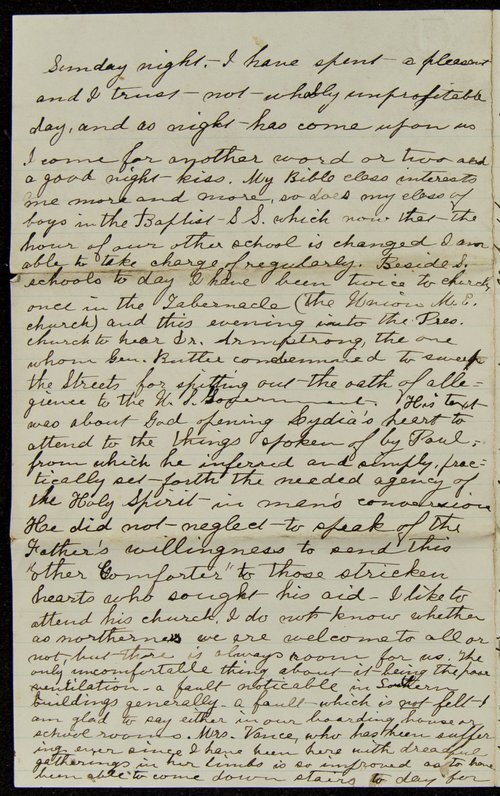 Sunday night. - I have spent a pleasant
and I trust - not - wholly unprofitable
day, and as night has come upon us
I come for another word or two and
a good night kiss. My Bible class interests
me more and more, so does my class of
boys in the Baptist S S. which now that the
hour of our other school is changed I am
able to take charge of regularly. Beside S.
schools to day I have been twice to church,
once in the Tabernacle (the Union M. E.
church) and this evening into the Pres.
church to hear Dr. Armstrong, the one
whom Gen. Butler condemned to sweep
the Streets for spitting out the oath of alle-
gience to the U. S. Government. His text
was about God opening Lydia's heart to
attend to the things spoken of by Paul;
from which he inferred and simply, prac-
tically set forth the needed agency of
the Holy Spirit in men's conversion
He did not neglect to speak of the
Father's willingness to send this
"other Comforter" to those stricken
hearts who sought his aid - I like to
attend his church. I do not know whether
as northerners we are welcome to all or
not, but there is always room for us. The
only uncomfortable thing about it being the poor
ventilation a fault noticable in Southern
buildings generally - a fault which is not felt I
am glad to say either in our boarding house or
school rooms. Mrs. Vance, who has been suffer
ing ever since I have been here with dreadful
gatherings in her limbs is so improved as to have
been able to come down stairs to day for